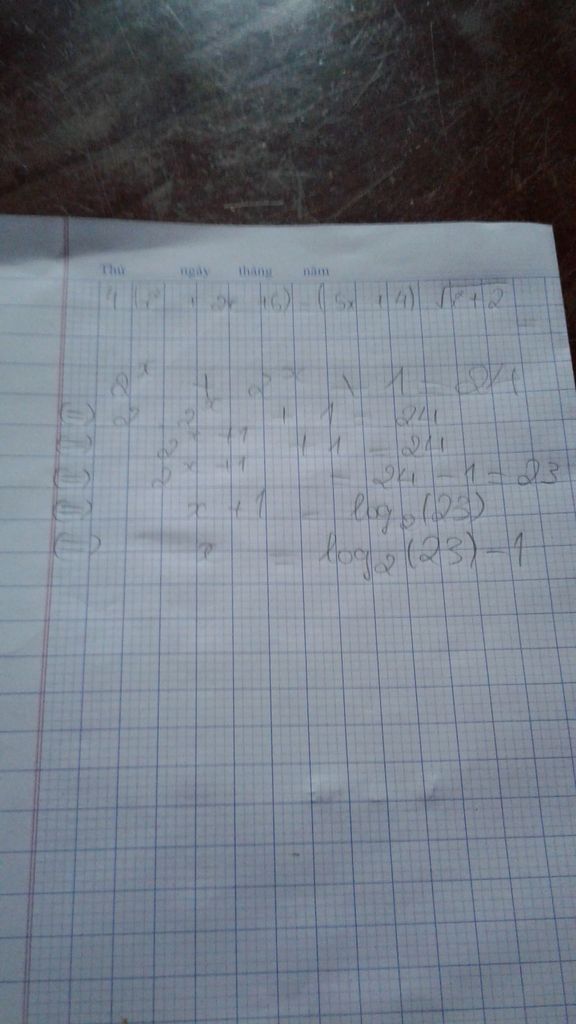 Thứ ngày tháng năm
4 (x² + 2x + 6) = (5x + 4) √x² + 2
2ˣ + 2ˣ + 1 = 24
2 . 2ˣ + 1 = 24
2ˣ⁺¹ + 1 = 24
2ˣ⁺¹ = 24 - 1 = 23
x + 1 = log₂(23)
x = log₂(23) - 1